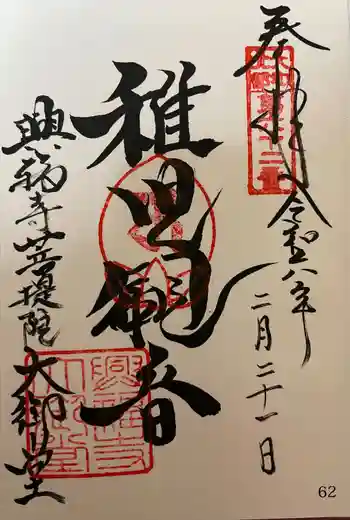 奉拝 令和八年
二月二十一日
稚児観音
興福寺菩提院大御堂
62